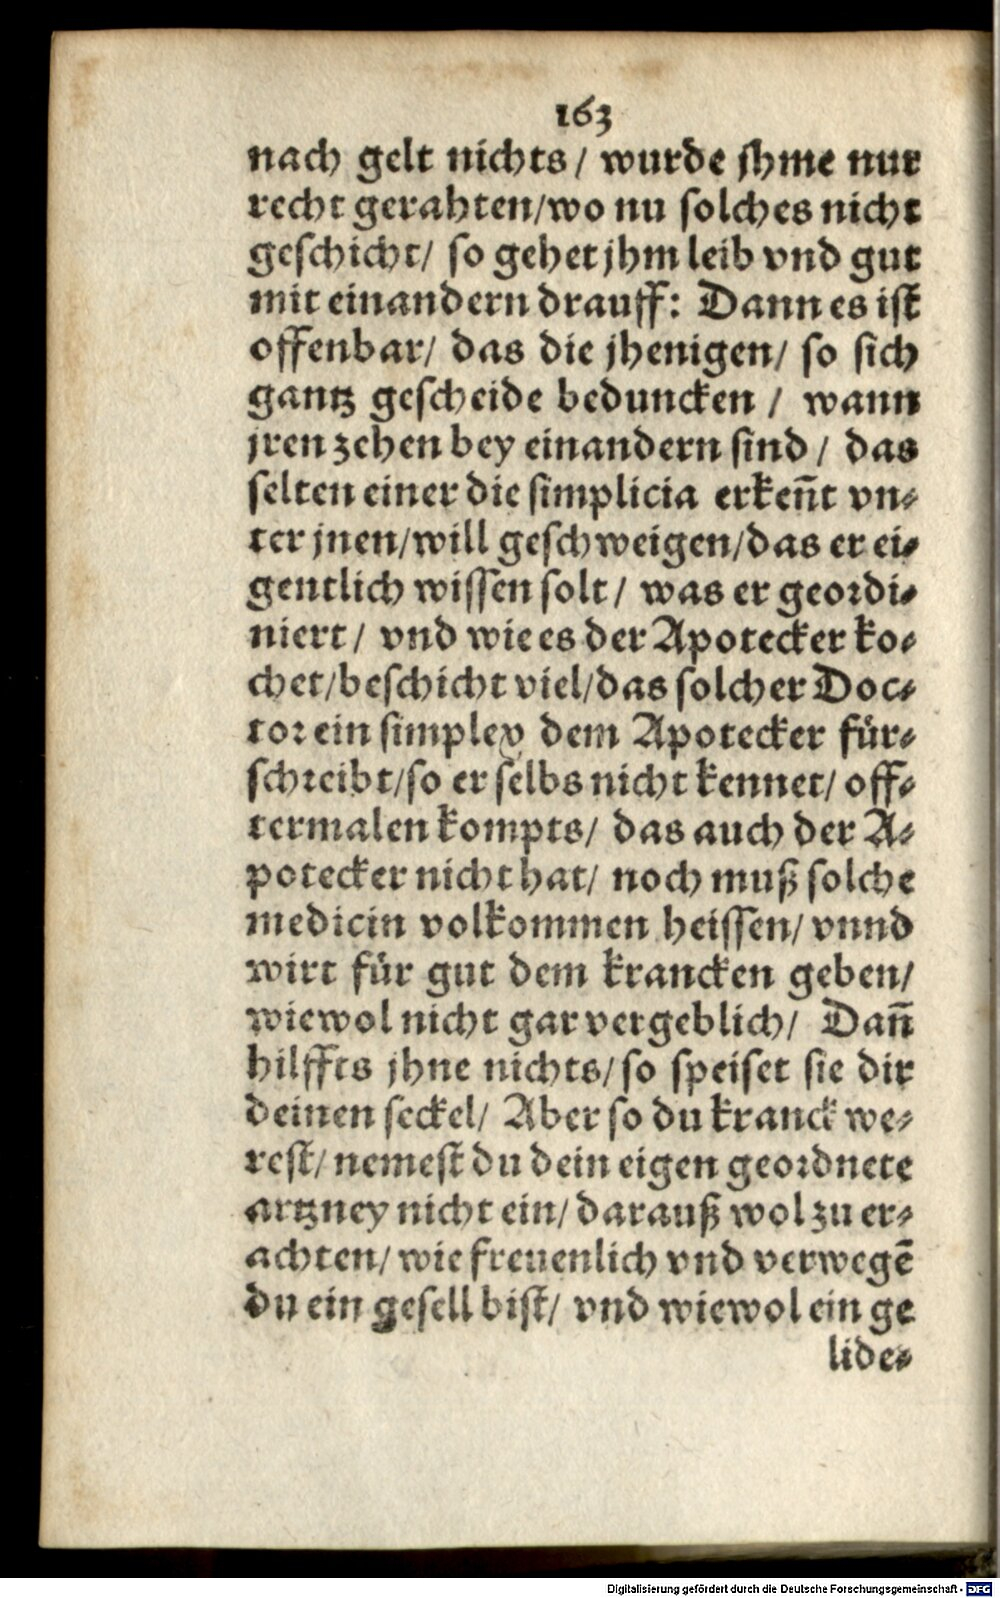 163
nach gelt nichts / wurde jhme nur
recht gerahten/wo nu solches nicht
geschicht/ so gehet jhm leib vnd gut
mit einandern drauff: Dann es ist
offenbar/ das die jhenigen/ so sich
gantz gescheide beduncken / wann
jren zehen bey einandern sind / das
selten einer die simplicia erkeñt vn⸗
ter jnen/will geschweigen/das er ei⸗
gentlich wissen solt / was er geordi⸗
niert / vnd wie es der Apotecker ko⸗
chet/beschicht viel/das solcher Doc⸗
tor ein simplex dem Apotecker für⸗
schreibt/so er selbs nicht kennet/ off⸗
termalen kompts/ das auch der A⸗
potecker nicht hat/ noch muß solche
medicin volkommen heissen/ vnnd
wirt für gut dem krancken geben/
wiewol nicht gar vergeblich/ Dañ
hilffts jhne nichts/so speiset sie dir
deinen seckel/ Aber so du kranck we⸗
rest/ nemest du dein eigen geordnete
artzney nicht ein/ darauß wol zu er⸗
achten/ wie freuenlich vnd verwegē
du ein gesell bist/ vnd wiewol ein ge
lide⸗
Digitalisierung gefördert durch die Deutsche Forschungsgemeinschaft - DFG